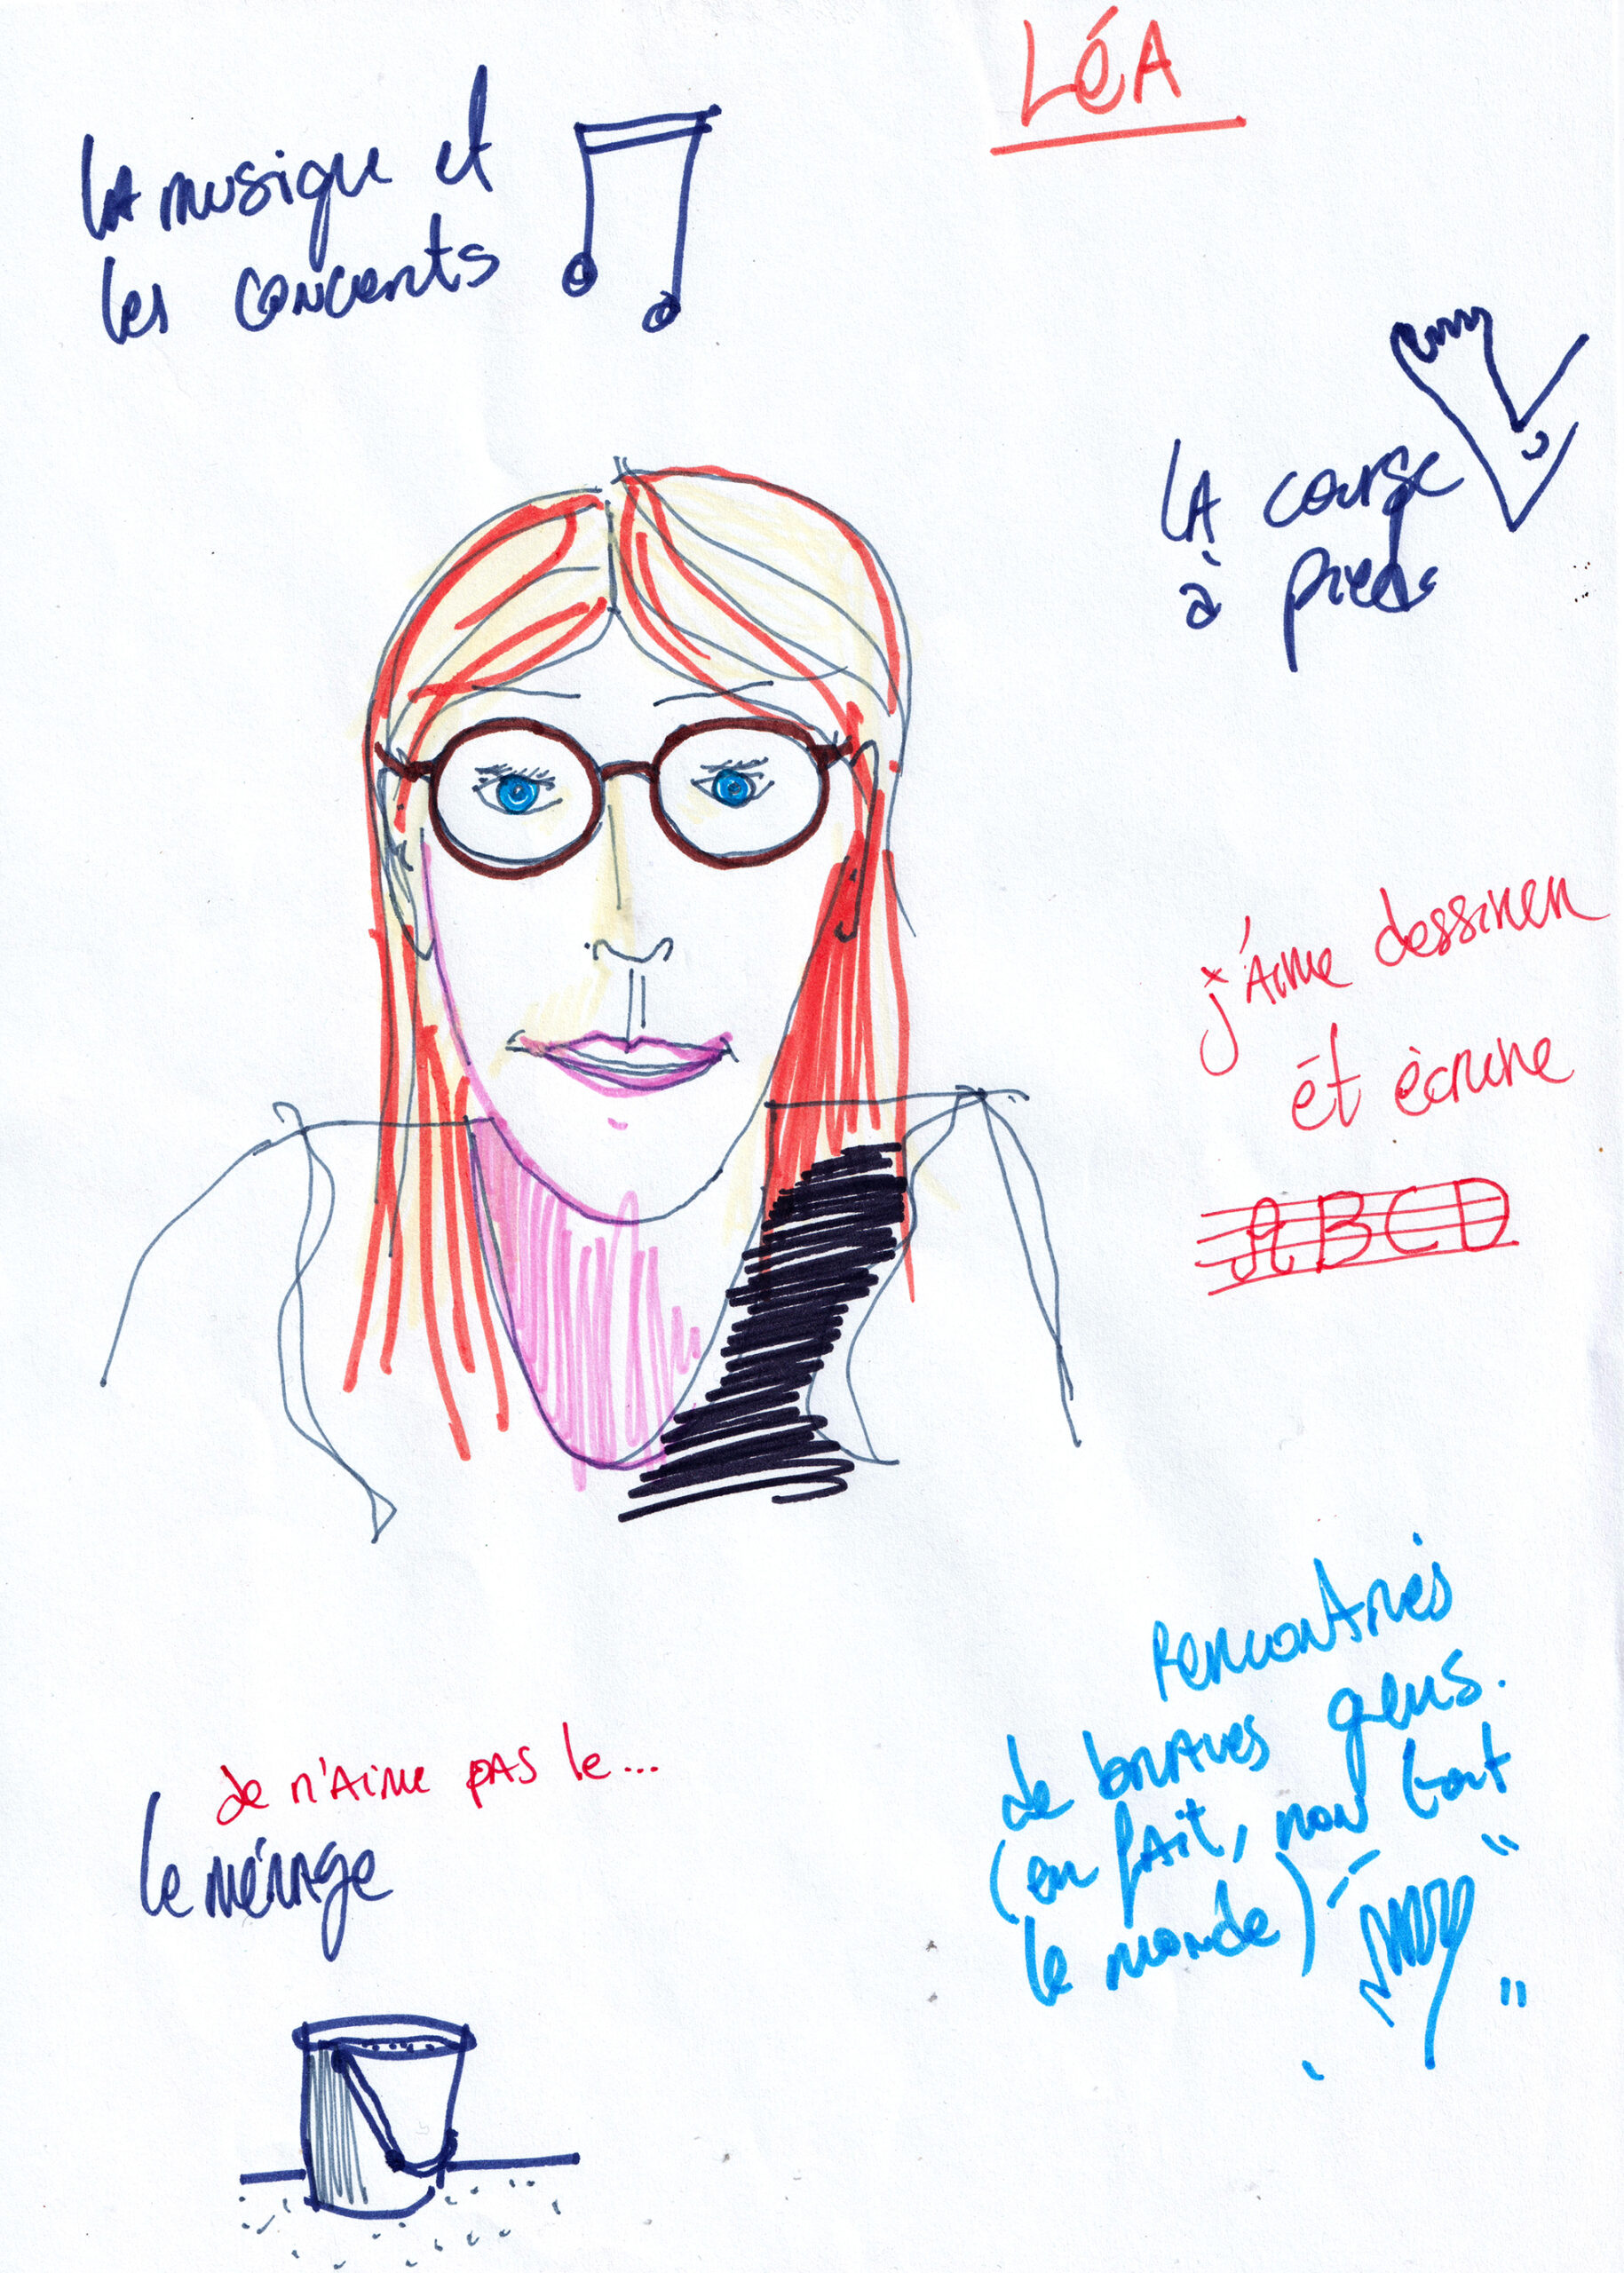 LÉA
LA musique et
les concerts
LA course
à pieds
j'Aime dessiner
ét écrire
ABCD
rencontrés
de braves gens.
(en fait, non tout
le monde)
Je n'Aime pas le...
le ménage